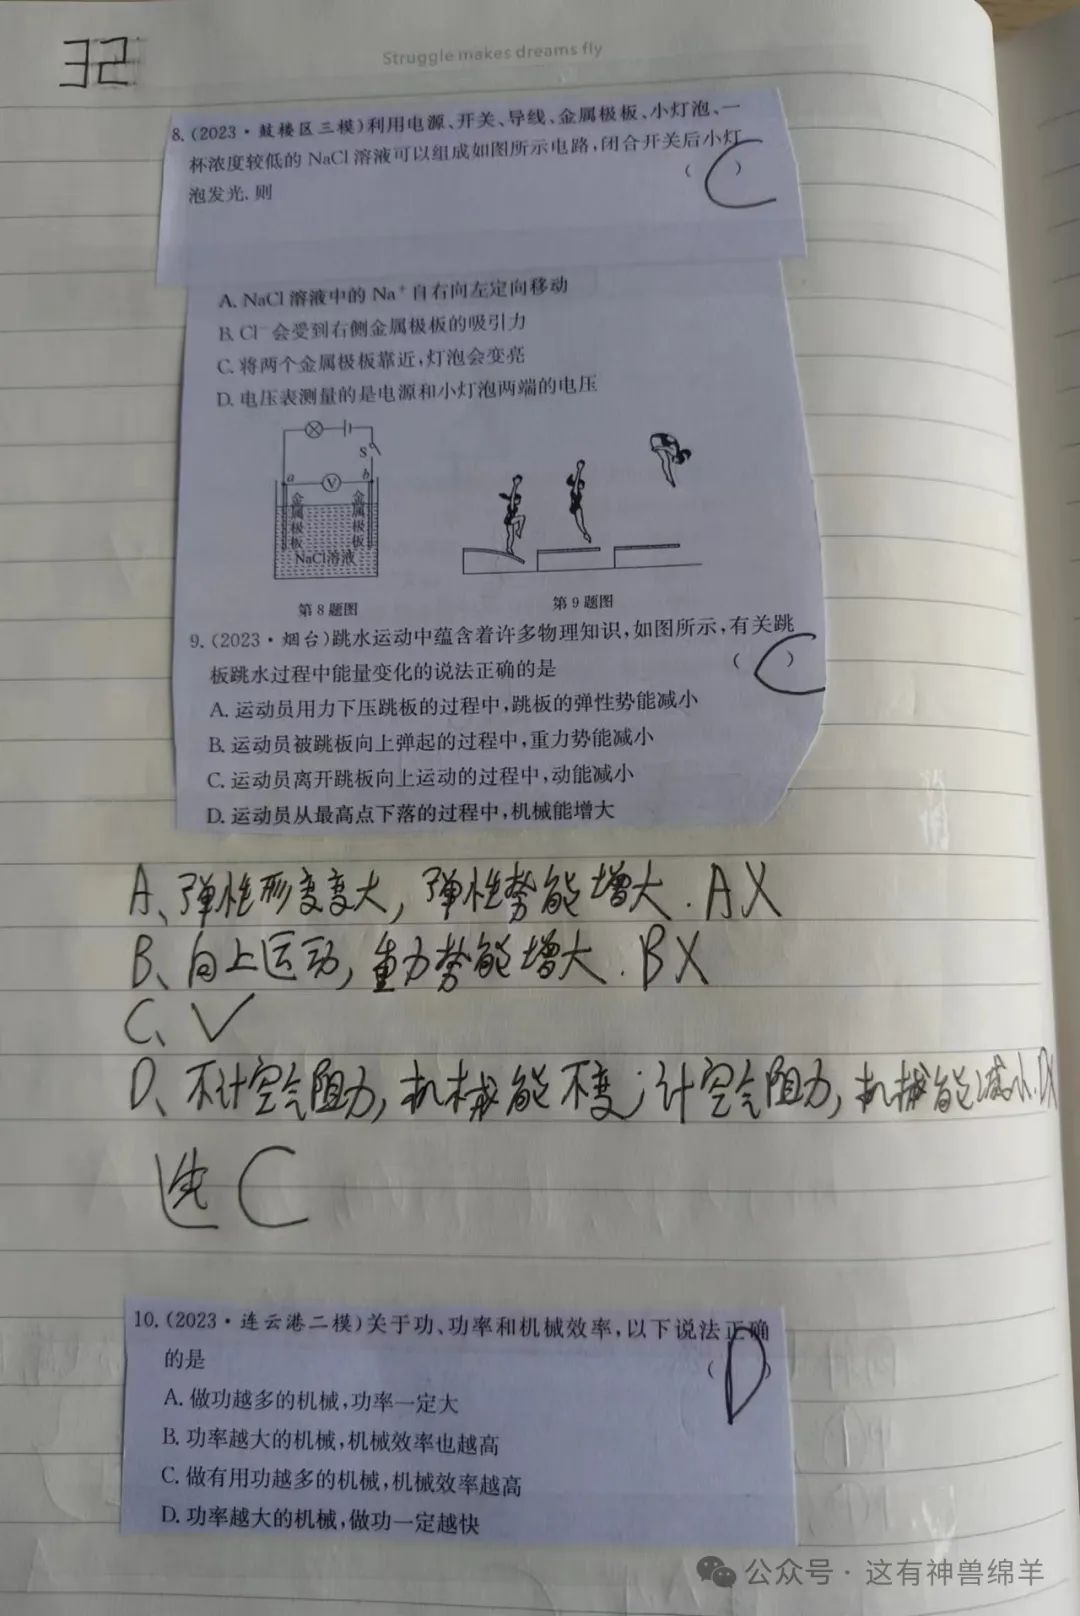 32
Struggle makes dreams fly
8. (2023·鼓楼区三模)利用电源、开关、导线、金属极板、小灯泡、一
杯浓度较低的 NaCl 溶液可以组成如图所示电路,闭合开关后小灯
泡发光.则
( C )
A. NaCl 溶液中的 Na⁺ 自右向左定向移动
B. Cl⁻ 会受到右侧金属极板的吸引力
C. 将两个金属极板靠近,灯泡会变亮
D. 电压表测量的是电源和小灯泡两端的电压
S
a V b
金属极板 金属极板
NaCl溶液
第 8 题图 第 9 题图
9. (2023·烟台)跳水运动中蕴含着许多物理知识,如图所示,有关跳
板跳水过程中能量变化的说法正确的是 ( C )
A. 运动员用力下压跳板的过程中,跳板的弹性势能减小
B. 运动员被跳板向上弹起的过程中,重力势能减小
C. 运动员离开跳板向上运动的过程中,动能减小
D. 运动员从最高点下落的过程中,机械能增大
A、弹性形变变大,弹性势能增大.A×
B、向上运动,重力势能增大.B×
C、√
D、不计空气阻力,机械能不变;计空气阻力,机械能减小.D×
选 C
10. (2023·连云港二模)关于功、功率和机械效率,以下说法正确
的是 ( D )
A. 做功越多的机械,功率一定大
B. 功率越大的机械,机械效率也越高
C. 做有用功越多的机械,机械效率越高
D. 功率越大的机械,做功一定越快
公众号·这有神兽绵羊